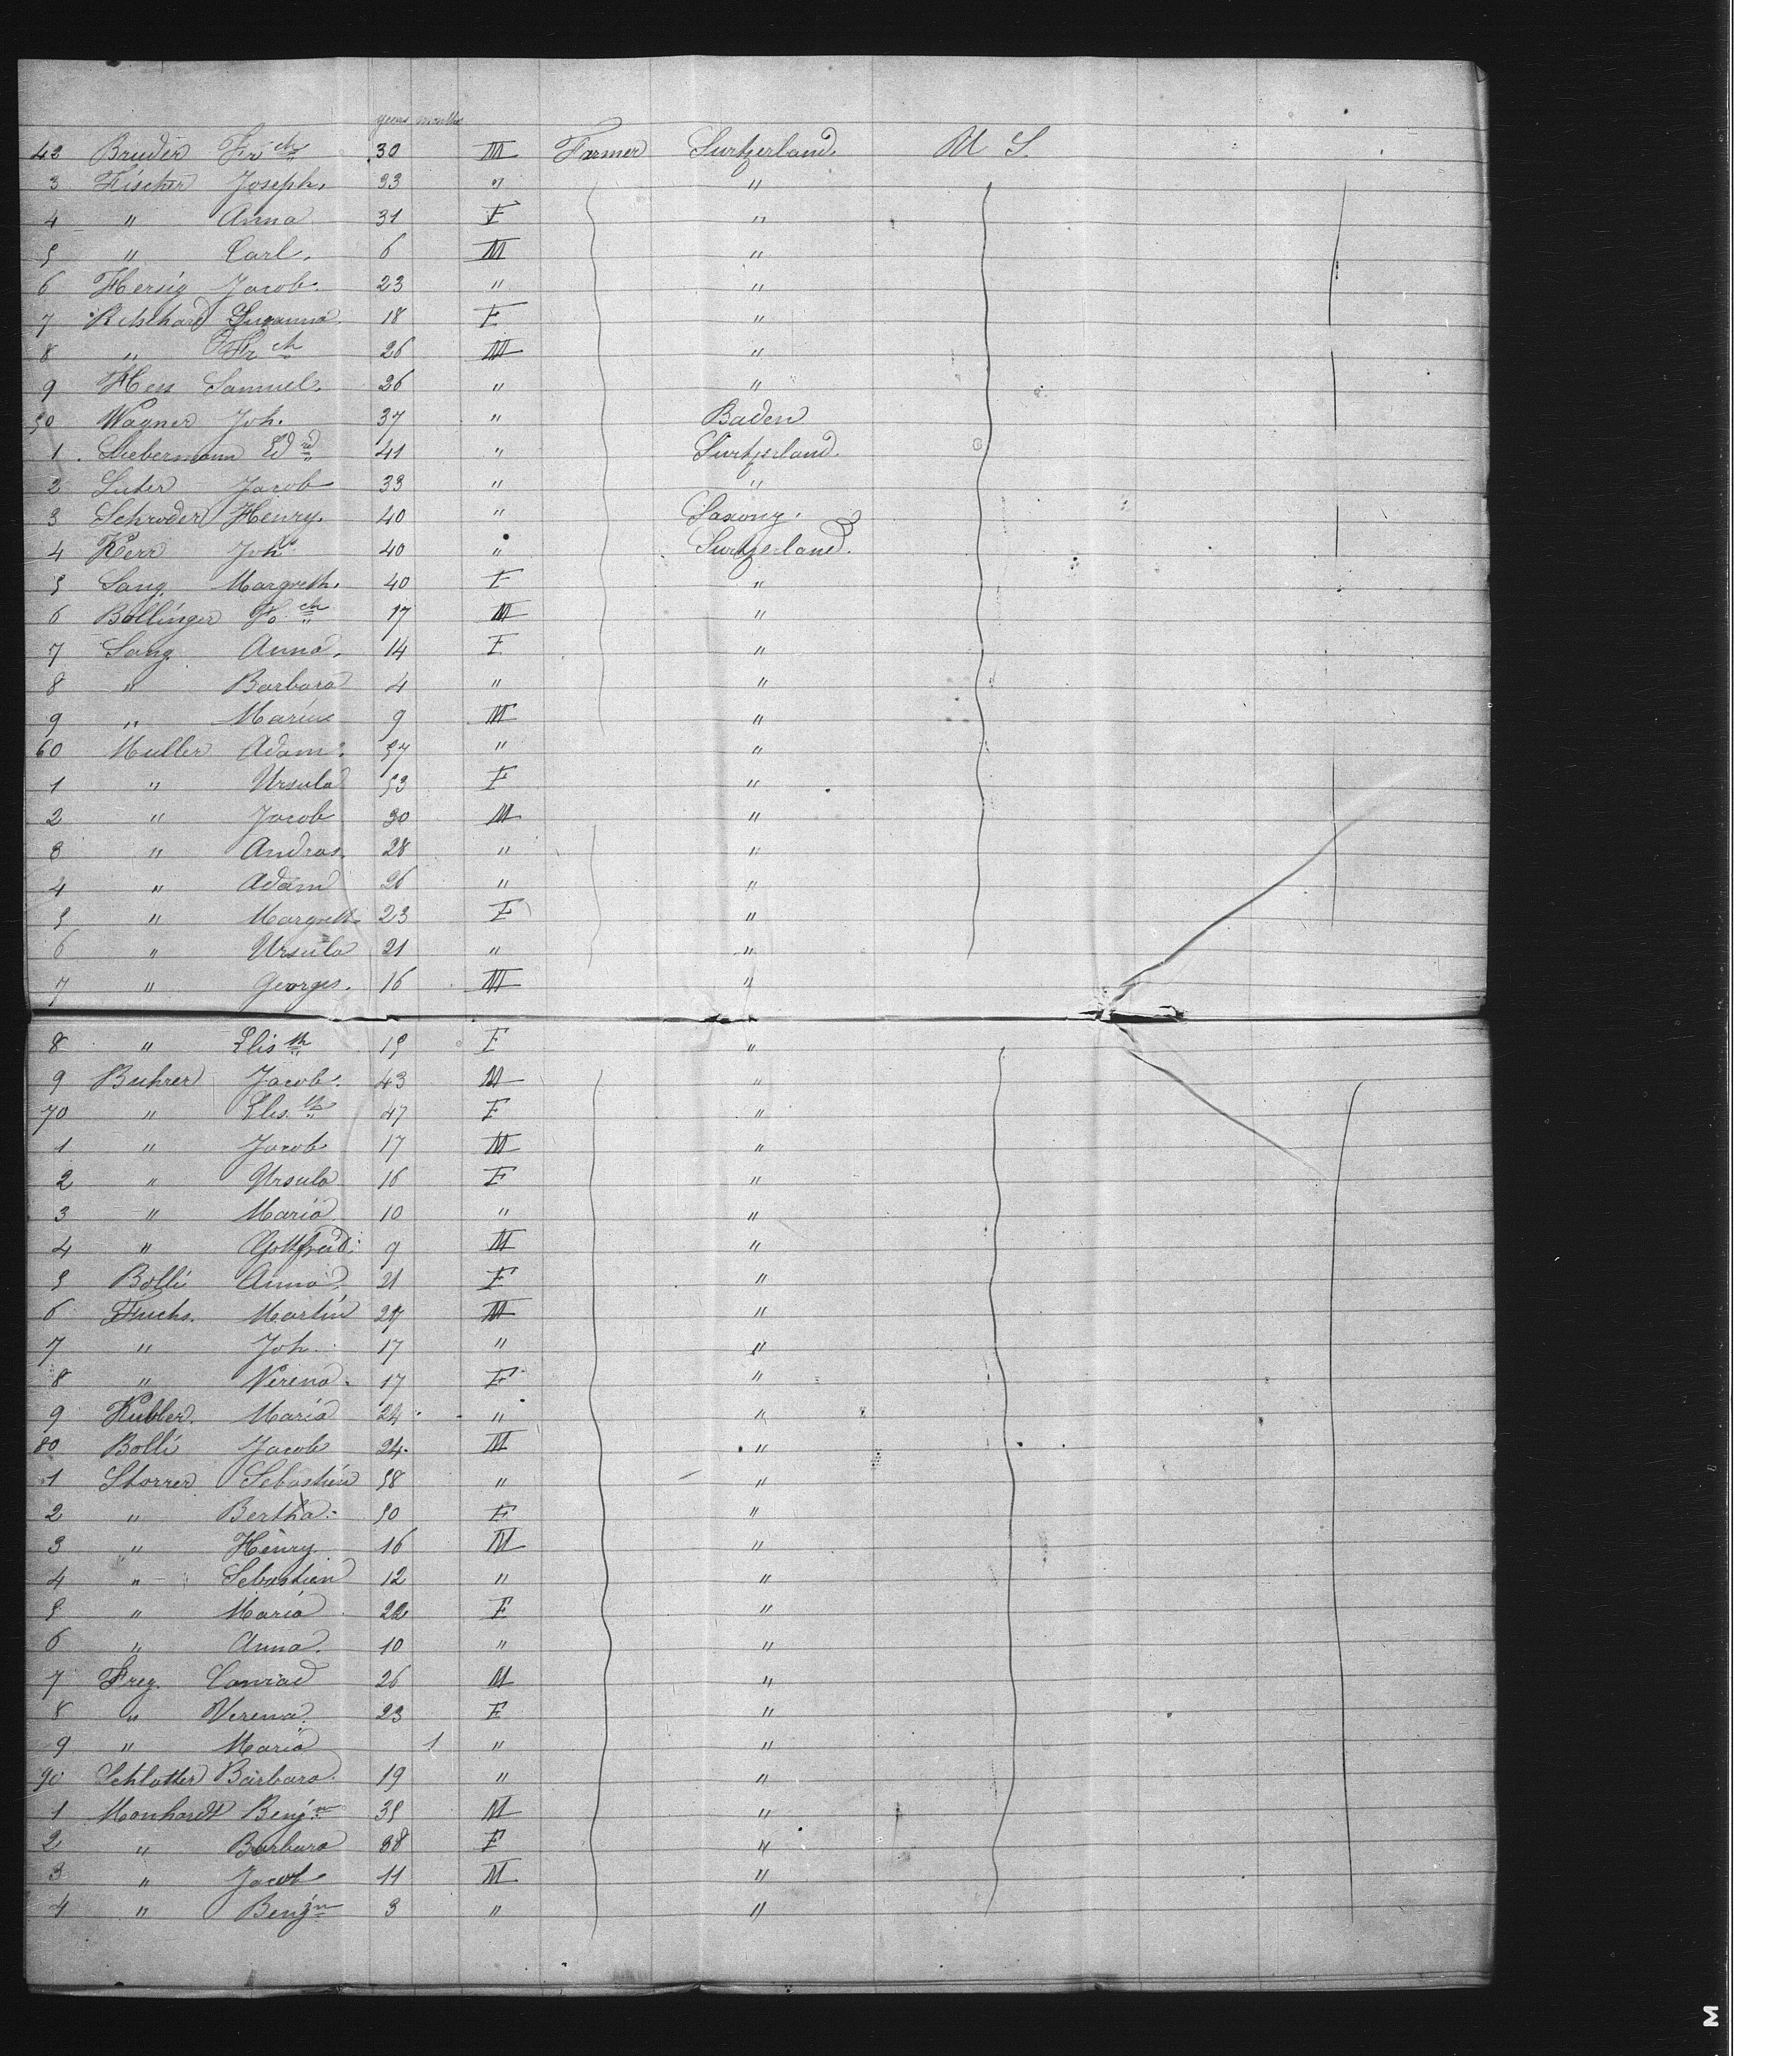 years months
42 Bruder Fr ch 30 M Farmer Surtzerland. U S.
3 Fischer Joseph. 33 " "
4 " Anna 31 F "
5 " Carl. 6 M "
6 Hersig Jacob. 23 " "
7 Susanna 18 F "
8 " Fr ch 26 M "
9 Hess Samuel. 26 " "
50 Wagner Joh. 37 " Baden
1 Liebermann Ed rd 41 " Surtzerland.
2 Suter Jacob 33 " "
3 Schroder Henry. 40 " Saxony.
4 Kerr Joh 40 " Surtzerland.
5 Lang Margreth. 40 F "
6 Bollinger ch 17 M "
7 Lang Anna. 14 F "
8 " Barbara 4 " "
9 " Marius 9 M "
60 Muller Adam. 57 " "
1 " Ursula 53 F "
2 " Jacob 30 M "
3 " Andras. 28 " "
4 " Adam 26 " "
5 " Margreth 23 F "
6 " Ursula 21 " "
7 " Georges. 16 M "
8 " Elis th 15 F "
9 Buhrer Jacob. 43 M "
70 " Elis. th 47 F "
1 " Jacob 17 M "
2 " Ursula 16 F "
3 " Maria 10 " "
4 " Gottfried. 9 M "
5 Bolli Anna. 21 F "
6 Fuchs. Martin 27 M "
7 " Joh. 17 " "
8 " Verena. 17 F "
9 Kubler. Maria 24 " "
80 Bolli Jacob 24 M "
1 Storrer Sebastien 58 " "
2 " Bertha. 50 F "
3 " Henry 16 M "
4 " Sebastien 12 " "
5 " Maria 22 F "
6 " Anna. 10 " "
7 Frey. Conrad 26 M "
8 " Verena. 23 F "
9 " Maria 1 " "
90 Schlatter Barbara. 19 " "
1 Monhardt Benj n 35 M "
2 " Barbara 38 F "
3 " Jacob 11 M "
4 " Benj n 3 " "
M